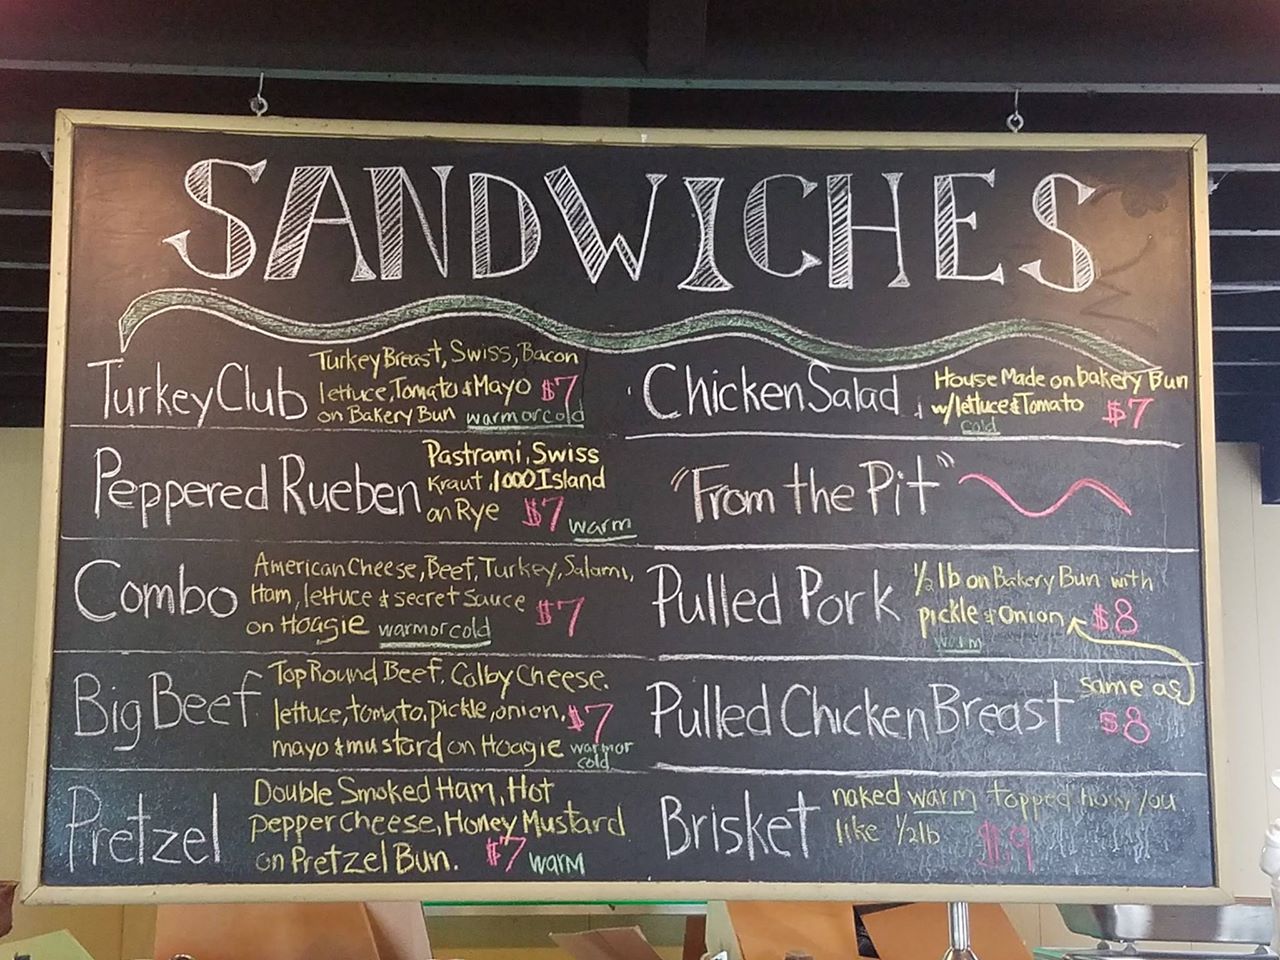 SANDWICHES
Turkey Club
Turkey Breast, Swiss, Bacon
lettuce, Tomato & Mayo $7
on Bakery Bun warm or cold
Peppered Rueben
Pastrami, Swiss
Kraut, 1000 Island
on Rye $7 warm
Combo
American Cheese, Beef, Turkey, Salami,
Ham, lettuce & secret sauce $7
on Hoagie warm or cold
Big Beef
Top Round Beef, Colby Cheese.
lettuce, tomato, pickle, onion, $7
mayo & mustard on Hoagie warm or
cold
Pretzel
Double Smoked Ham, Hot
pepper cheese, Honey Mustard
on Pretzel Bun. $7 warm
Chicken Salad
House Made on bakery Bun
w/lettuce & Tomato $7
cold
"From the Pit"
Pulled Pork
1/2 lb on Bakery Bun with
pickle & Onion $8
warm
Pulled Chicken Breast
same as
$8
Brisket
naked warm topped how you
like 1/2 lb $9